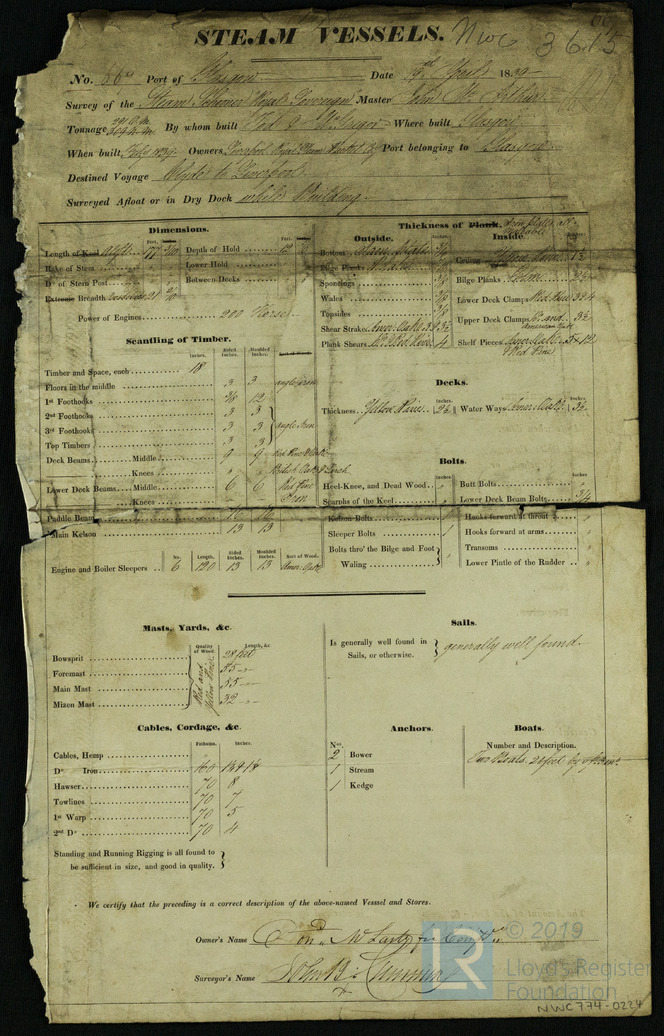 STEAM VESSELS. NWC 3615
No. Port of Glasgow Date April 1839
Survey of the Steam Schooner "Royal Sovereign" Master John Mc Arthur
Tonnage By whom built Tod & McGregor Where built Glasgow
When built 1839 Owners Liverpool Royal Steam Packet Co Port belonging to Glasgow
Destined Voyage Clyde to Liverpool
Surveyed Afloat or in Dry Dock while Building
Dimensions.
Feet.
Length of Keel aloft 177
Rake of Stem
Do of Stern Post
Extreme Breadth 21
Depth of Hold 12
Lower Hold
Between Decks
Power of Engines 200 Horse
Scantling of Timber.
Inches. Sided Inches. Moulded Inches.
Timber and Space, each 18
Floors in the middle 3 3 angle iron
1st Foothooks
2nd Foothooks 3 3
3rd Foothooks 3 3 angle Iron
Top Timbers 3 3
Deck Beams Middle 9 9 Red Pine & Oak
Knees British Oak & Larch
Lower Deck Beams Middle 6 6 Red Pine
Knees Iron
Paddle Beams
Main Kelson 13 13
No. Length. Sided Inches. Moulded Inches. Sort of Wood.
Engine and Boiler Sleepers 6 120 13 13 Amer. Oak
Thickness of Plank. Iron Plates
Outside. Inches.
Bottom
Bilge Planks
Spondings
Wales
Topsides
Shear Strakes Amer. Oak
Plank Shears Red Pine 4
Inside. Inches
Ceiling
Bilge Planks
Lower Deck Clamps Red Pine
Upper Deck Clamps and American Oak
Shelf Pieces Amer. Oak & Red Pine
Decks.
Thickness Yellow Pine 3½ Water Ways Amer. Oak 3½
Bolts.
Heel-Knee, and Dead Wood
Scarphs of the Keel
Kelson Bolts
Sleeper Bolts
Bolts thro' the Bilge and Foot Waling
Butt Bolts
Lower Deck Beam Bolts 3/4
Hooks forward at throat
Hooks forward at arms
Transoms
Lower Pintle of the Rudder
Masts, Yards, &c.
Quality of Wood. Length, &c
Bowsprit 28 feet
Foremast 55
Main Mast 55
Mizen Mast 32
Red and Yellow Pine
Sails.
Is generally well found in Sails, or otherwise. generally well found.
Cables, Cordage, &c.
Fathoms. Inches.
Cables, Hemp
Do Iron 160
Hawser 70 8
Towlines 70 7
1st Warp 70 5
2nd Do 70 4
Standing and Running Rigging is all found to
be sufficient in size, and good in quality.
Anchors.
Nos.
2 Bower
1 Stream
1 Kedge
Boats.
Number and Description.
Two Boats 21 feet by
We certify that the preceding is a correct description of the above-named Vessel and Stores.
Owner's Name McLarty for Comp'y
Surveyor's Name John B. Cumming
LR © 2019
Lloyd's Register
Foundation
NWC774-0224